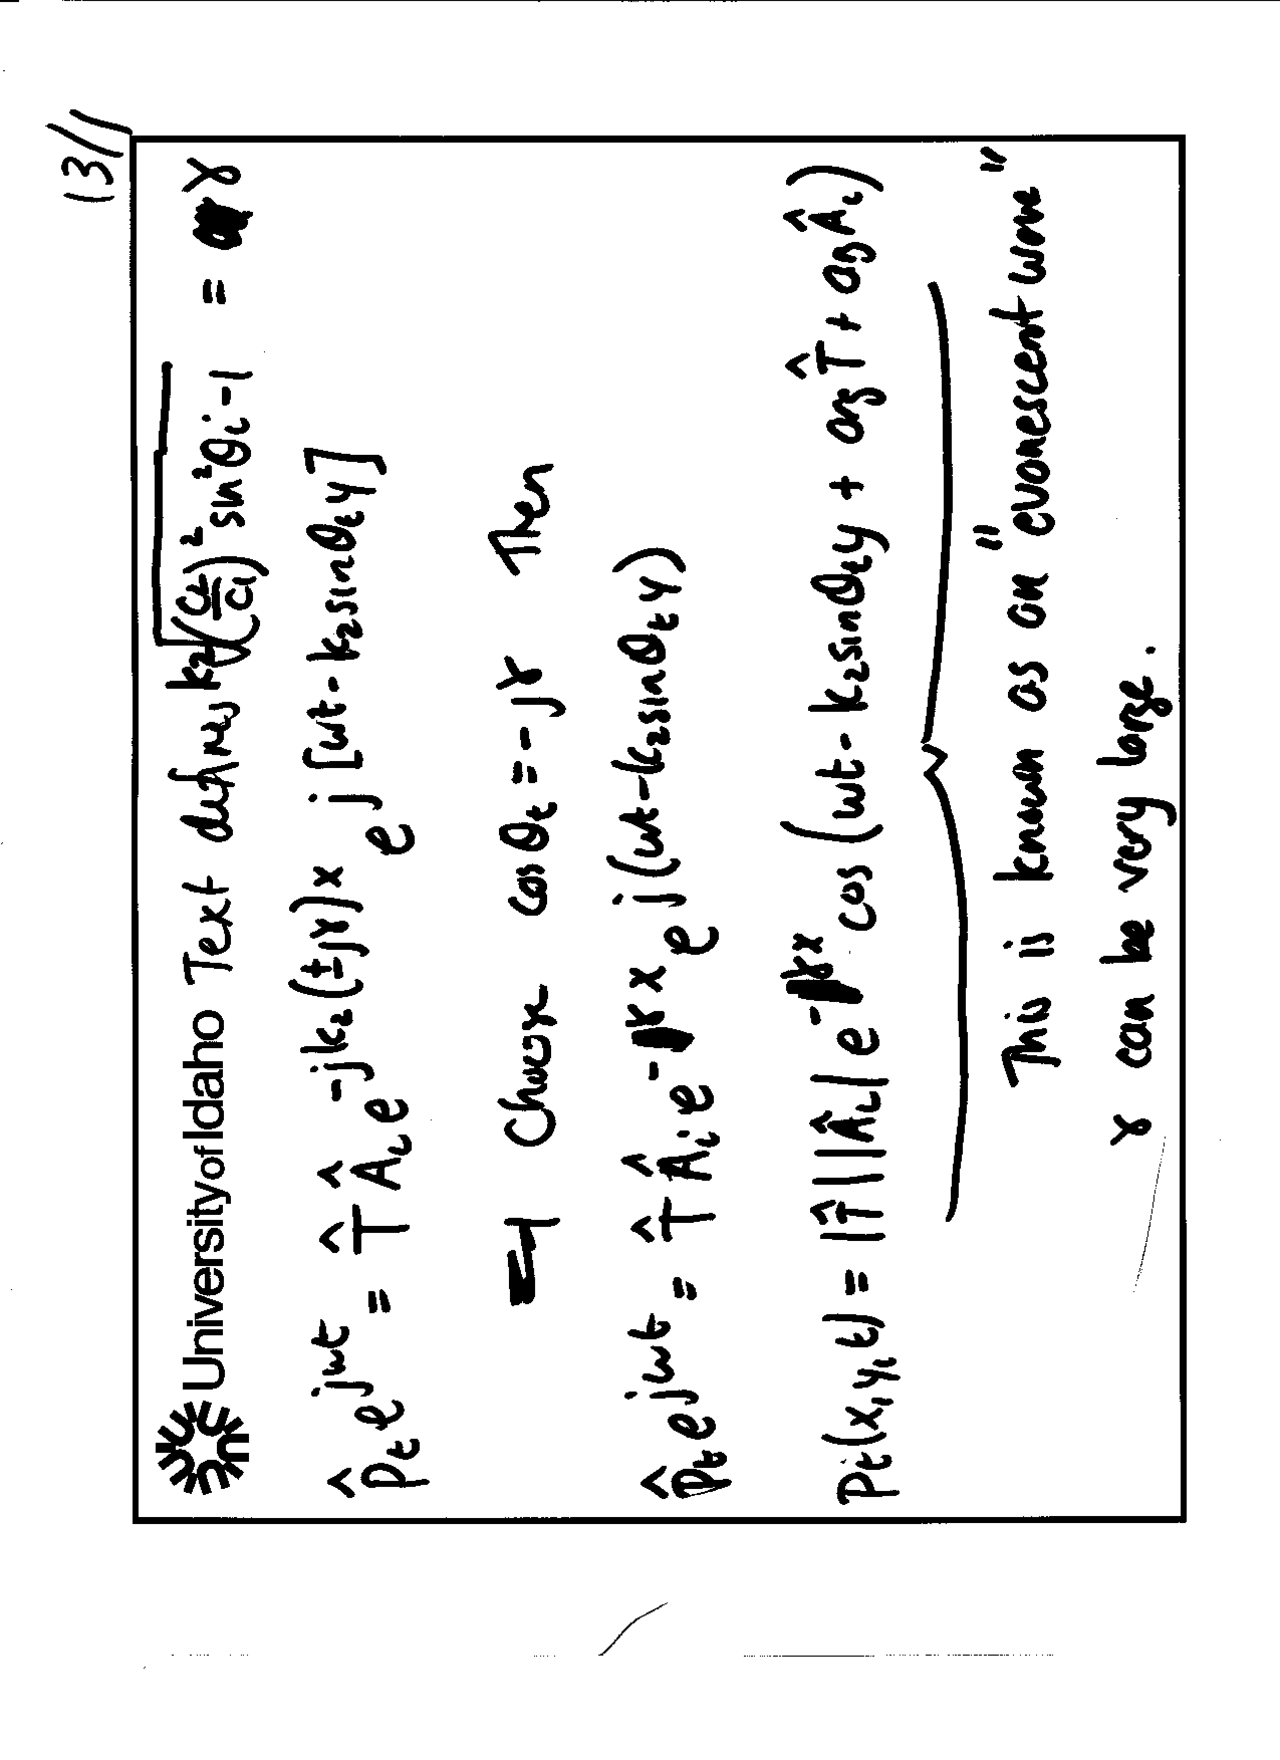 13//
University of Idaho Text defines k₂√((c₂/c₁)² sin²θi - 1) = γ
p̂t e^jωt = T̂ Âi e^-jk₂(±jγ)x e^j[ωt - k₂sinθt y]
⇒ Choose cosθt = -jγ Then
p̂t e^jωt = T̂ Âi e^-γx e^j(ωt - k₂sinθt y)
pt(x,y,t) = |T̂||Âi| e^-γx cos(ωt - k₂sinθt y + arg T̂ + arg Âi)
This is known as an "evanescent wave"
γ can be very large.